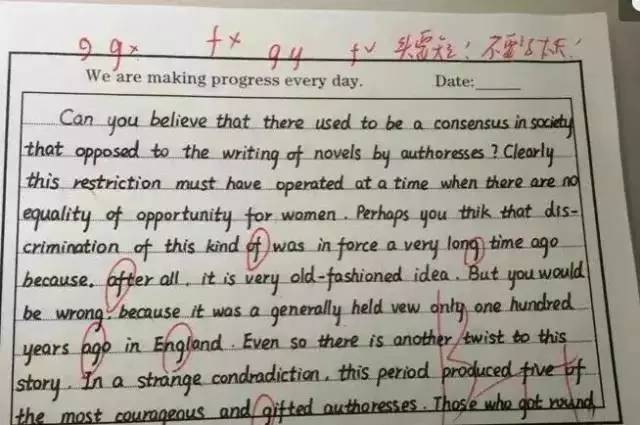 9 g× f× g y f✓ 头 ！ 不要 ！
We are making progress every day. Date:
Can you believe that there used to be a consensus in society
that opposed to the writing of novels by authoresses ? Clearly
this restriction must have operated at a time when there are no
equality of opportunity for women . Perhaps you thik that dis-
crimination of this kind of was in force a very long time ago
because, after all , it is very old-fashioned idea . But you would
be wrong, because it was a generally held vew only one hundred
years ago in England . Even so there is another twist to this
story . In a strange condradiction , this period produced five of
the most courageous and gifted authoresses . Those who got round